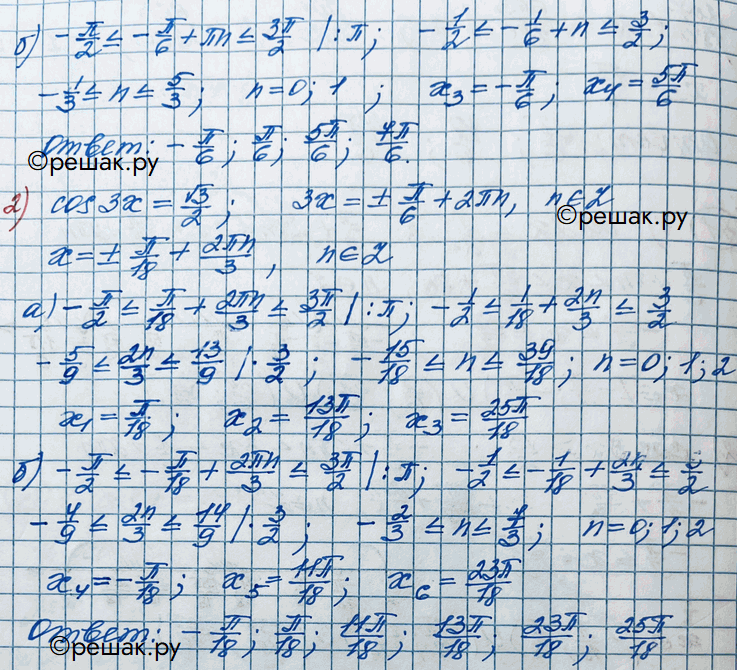 б) -π/2 ≤ -π/6 + πn ≤ 3π/2 |:π; -1/2 ≤ -1/6 + n ≤ 3/2;
-1/3 ≤ n ≤ 5/3; n=0; 1; x₃ = -π/6; x₄ = 5π/6
Ответ: -π/6; π/6; 5π/6; 7π/6.
©решак.ру
2) cos 3x = √3/2; 3x = ± π/6 + 2πn, n∈Z
©решак.ру
x = ± π/18 + 2πn/3, n∈Z
а) -π/2 ≤ π/18 + 2πn/3 ≤ 3π/2 |:π; -1/2 ≤ 1/18 + 2n/3 ≤ 3/2
-5/9 ≤ 2n/3 ≤ 13/9 |·3/2; -15/18 ≤ n ≤ 39/18; n=0; 1; 2
x₁ = π/18; x₂ = 13π/18; x₃ = 25π/18
б) -π/2 ≤ -π/18 + 2πn/3 ≤ 3π/2 |:π; -1/2 ≤ -1/18 + 2n/3 ≤ 3/2
-4/9 ≤ 2n/3 ≤ 14/9 |·3/2; -2/3 ≤ n ≤ 7/3; n=0; 1; 2
x₄ = -π/18; x₅ = 11π/18; x₆ = 23π/18
Ответ: -π/18; π/18; 11π/18; 13π/18; 23π/18; 25π/18
©решак.ру